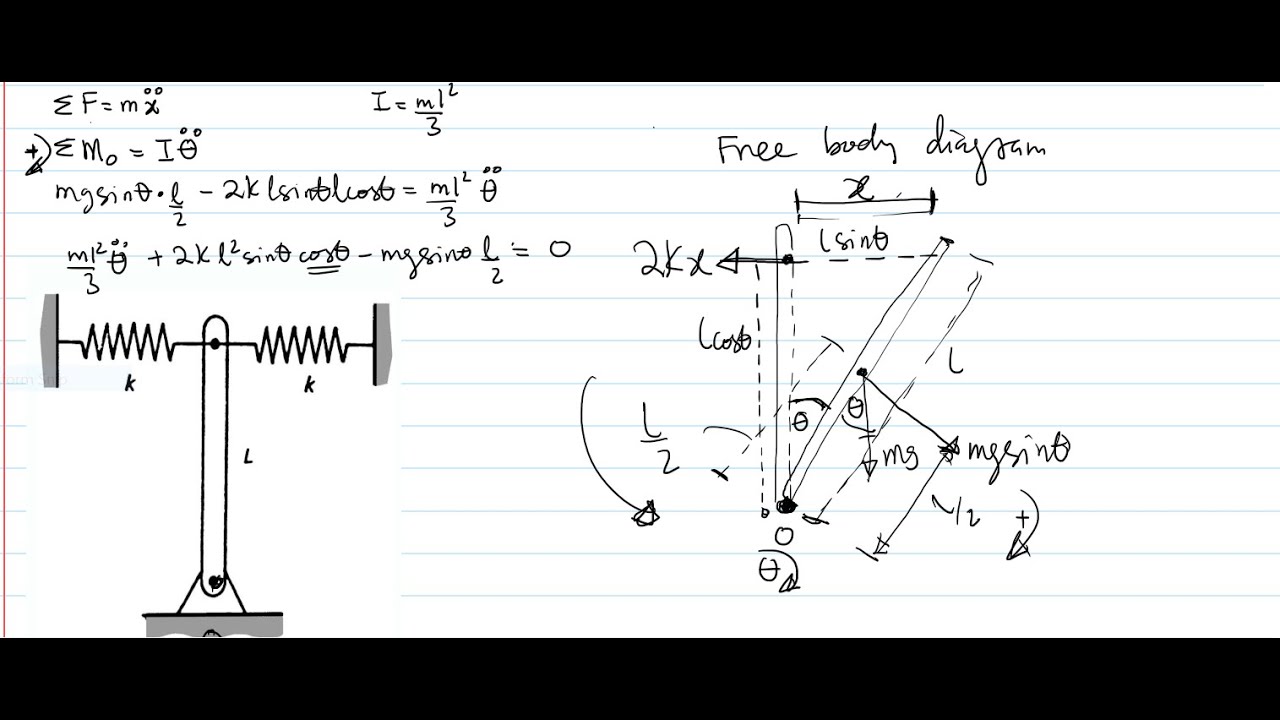 ΣF = mẍ
I = ml²/3
+ ΣM₀ = Iθ̈
mgsinθ · l/2 - 2klsinθlcosθ = ml²/3 θ̈
ml²/3 θ̈ + 2kl²sinθ cosθ - mgsinθ l/2 = 0
k
k
L
Free body diagram
x
lsinθ
2kx
lcosθ
l
l/2
θ
θ
mg
mgsinθ
l/2
+
O
θ